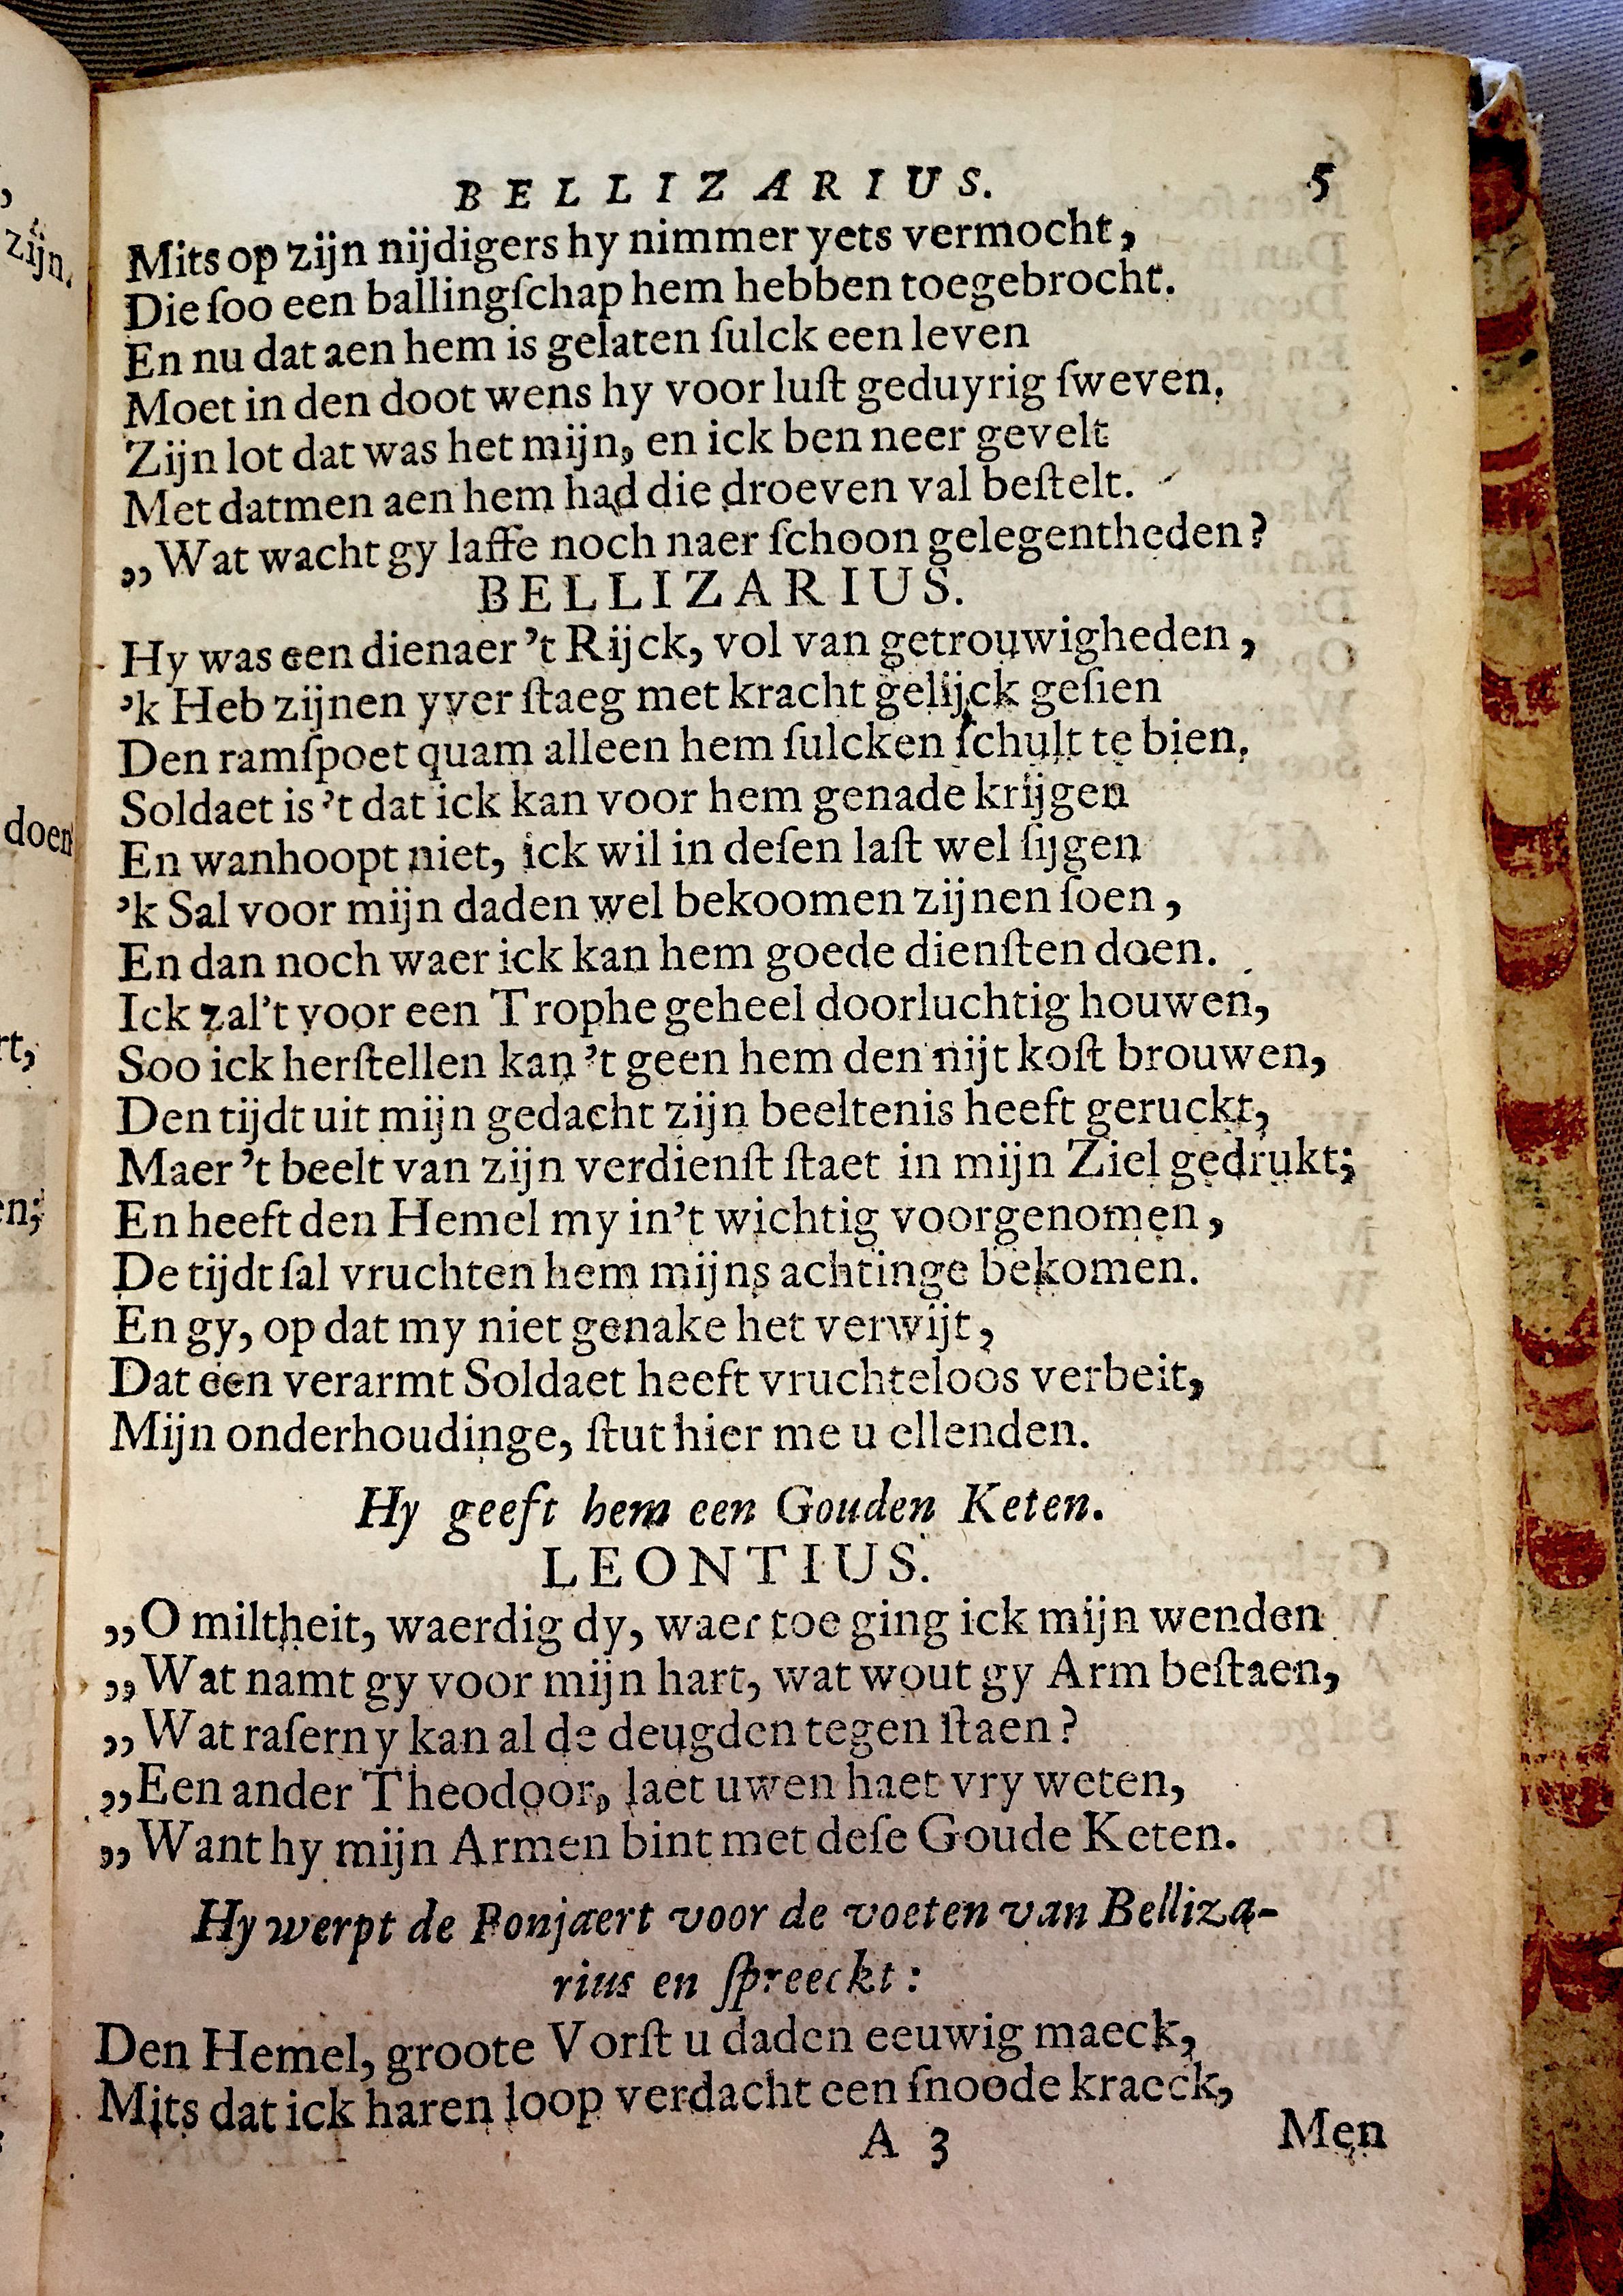 BELLIZARIUS. 5
Mits op zijn nijdigers hy nimmer yets vermocht,
Die ſoo een ballingſchap hem hebben toegebrocht.
En nu dat aen hem is gelaten ſulck een leven
Moet in den doot wens hy voor luſt geduyrig ſweven.
Zijn lot dat was het mijn, en ick ben neer gevelt
Met datmen aen hem had die droeven val beſtelt.
„Wat wacht gy laffe noch naer ſchoon gelegentheden?
BELLIZARIUS.
Hy was een dienaer 't Rijck, vol van getrouwigheden,
'k Heb zijnen yver ſtaeg met kracht gelijck geſien
Den ramſpoet quam alleen hem ſulcken ſchult te bien.
Soldaet is 't dat ick kan voor hem genade krijgen
En wanhoopt niet, ick wil in deſen laſt wel ſijgen
'k Sal voor mijn daden wel bekoomen zijnen ſoen,
En dan noch waer ick kan hem goede dienſten doen.
Ick zal't voor een Trophe geheel doorluchtig houwen,
Soo ick herſtellen kan 't geen hem den nijt koſt brouwen,
Den tijdt uit mijn gedacht zijn beeltenis heeft geruckt,
Maer 't beelt van zijn verdienſt ſtaet in mijn Ziel gedrukt;
En heeft den Hemel my in't wichtig voorgenomen,
De tijdt ſal vruchten hem mijns achtinge bekomen.
En gy, op dat my niet genake het verwijt,
Dat een verarmt Soldaet heeft vruchteloos verbeit,
Mijn onderhoudinge, ſtut hier me u ellenden.
Hy geeft hem een Gouden Keten.
LEONTIUS.
„O miltheit, waerdig dy, waer toe ging ick mijn wenden
„Wat namt gy voor mijn hart, wat wout gy Arm beſtaen,
„Wat raſerny kan al de deugden tegen ſtaen?
„Een ander Theodoor, laet uwen haet vry weten,
„Want hy mijn Armen bint met deſe Goude Keten.
Hy werpt de Ponjaert voor de voeten van Belliza-
rius en ſpreeckt:
Den Hemel, groote Vorſt u daden eeuwig maeck,
Mits dat ick haren loop verdacht een ſnoode kraeck,
A 3 Men